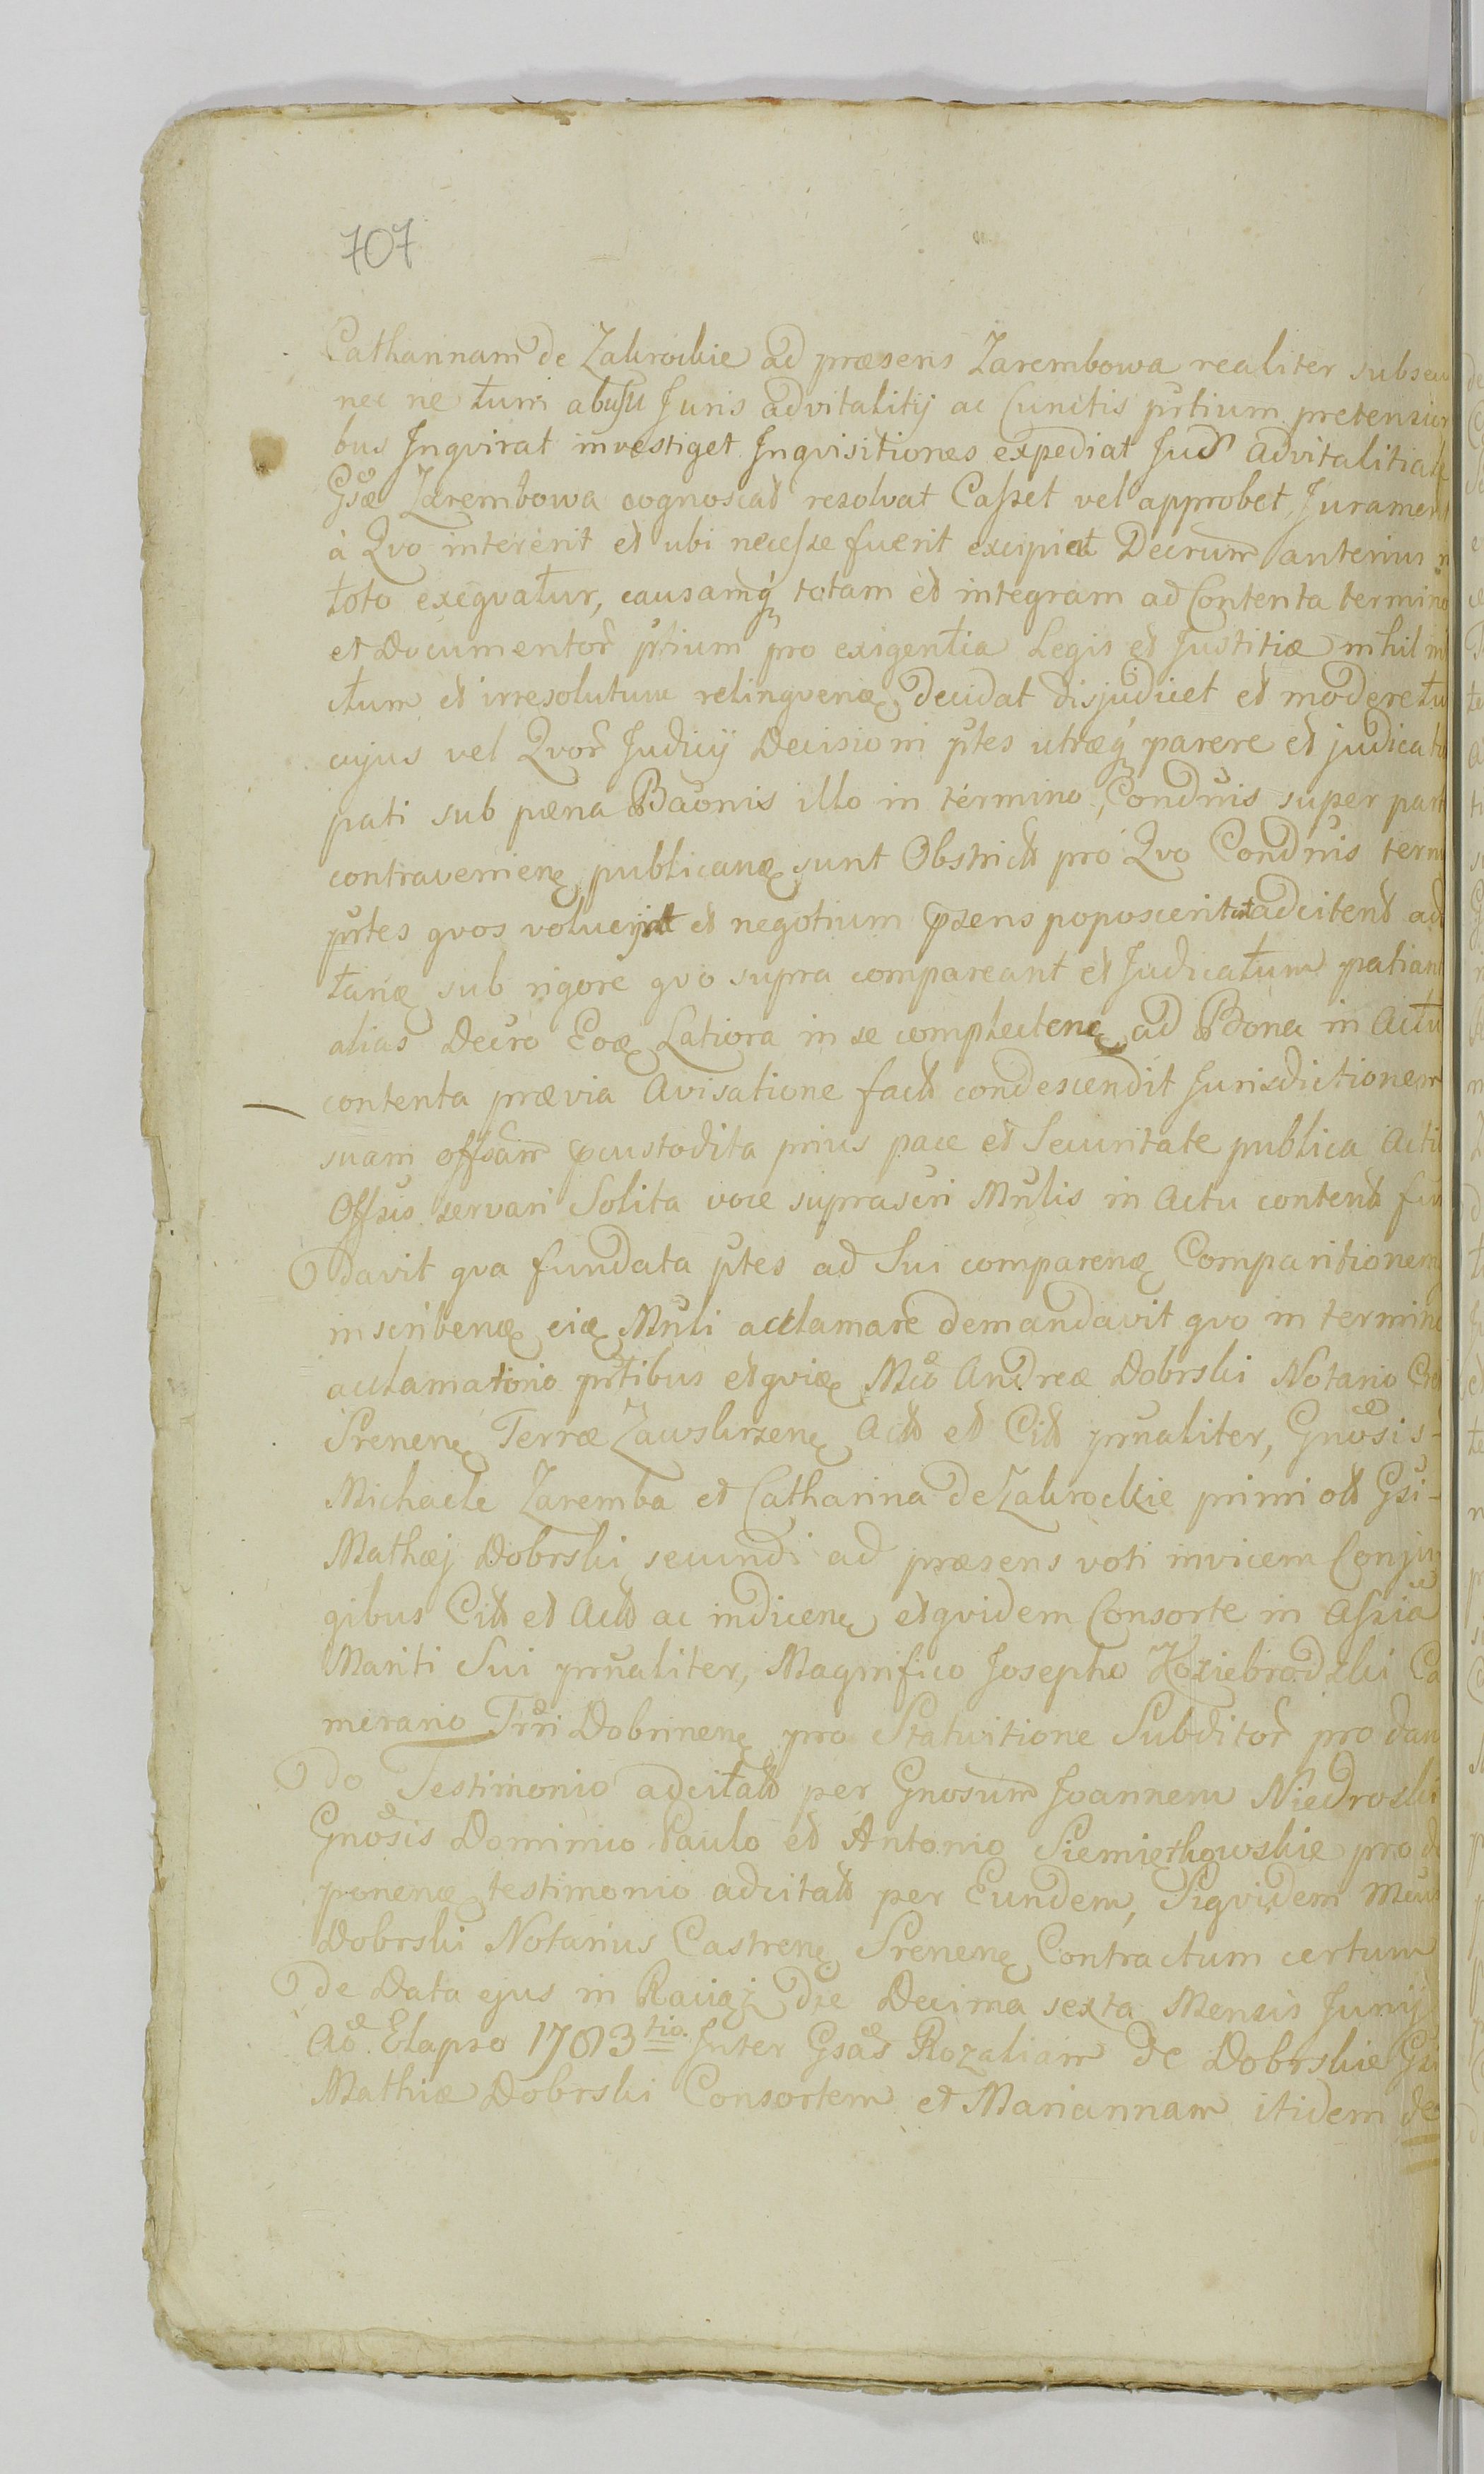 707
Catharinam de Zakrockie ad præsens Zarembowa realiter subseu
nec ne tum abusu Juris advitalitij ac Cunctis prtium pretensio
bus Inqvirat investiget Inqvisitiones expediat Jus advitalitia
Gsæ Zarembowa cognoscat resolvat Casset vel approbet, Jurament
à Qvo interérit et ubi necesse fuerit excipiat Decrum anterius
toto exeqvatur, causamq́ totam et integram ad Contenta termino
et Documentor prtium pro exigentia Legis et Justitiæ nihil in
ctum et irresolutum relinqvenę, decidat disjudicet et moderetu
cujus vel Qvor Judicij Decisioni ptes utræq́ parere et judicat
pati sub pæna Baonis illo in término, Condnis super part
contravenienę publicanę sunt Obstrictt pro Qvo Condnis term
prtes qvos voluerit et negotium psens poposcerit adcitent ad
tanę sub rigore qvo supra compareant et Judicatum patiant
alias Decro Eoę Latiora in se complectenę ad Bona in Actu
contenta prævia Avisatione fact condescendit Jurisdictionem
suam offsam pcustodita prius pace et Securitate publica Acti
Offsis servari Solita voce suprascri Mnlis in Actu content fun
davit qva fundata ptes ad Sui comparenę Comparitionem
inscribenę eię Mnli acclamare demandavit qvo in termino
acclamatorio prtibus etqvię Mco Andreæ Dobrski Notario
Srenenę Terræ Zawskrzenę Actt et Citt prnaliter, Gnosis
Michaele Zaremba et Catharina de Zakrockie primi ott Gsi
Mathæj Dobrski secundi ad præsens voti invicem Conju
gibus Citt et Actt ac indicenę etqvidem Consorte in Assia
Mariti Sui prnaliter, Magnifico Josepho Koziebrodzki Ca
merario Trri Dobrinenę pro Statuitione Subditor pro dan
do Testimonio adcitatt per Gnosum Joannem Niedroski
Gnosis Dominico Paulo et Antonio Siemiętkowskie pro de
ponenę testimonio adcitatt per Eundem, Siqvidem Mcus
Dobrski Notarius Castrenę Srenenę Contractum certum
de Data ejus in Raciąż die Decima sexta Mensis Junij
Ao. Elapso 1783tio. Inter Gsas Rozaliam de Dobrskie Gsi
Mathiæ Dobrski Consortem et Mariannam itidem de